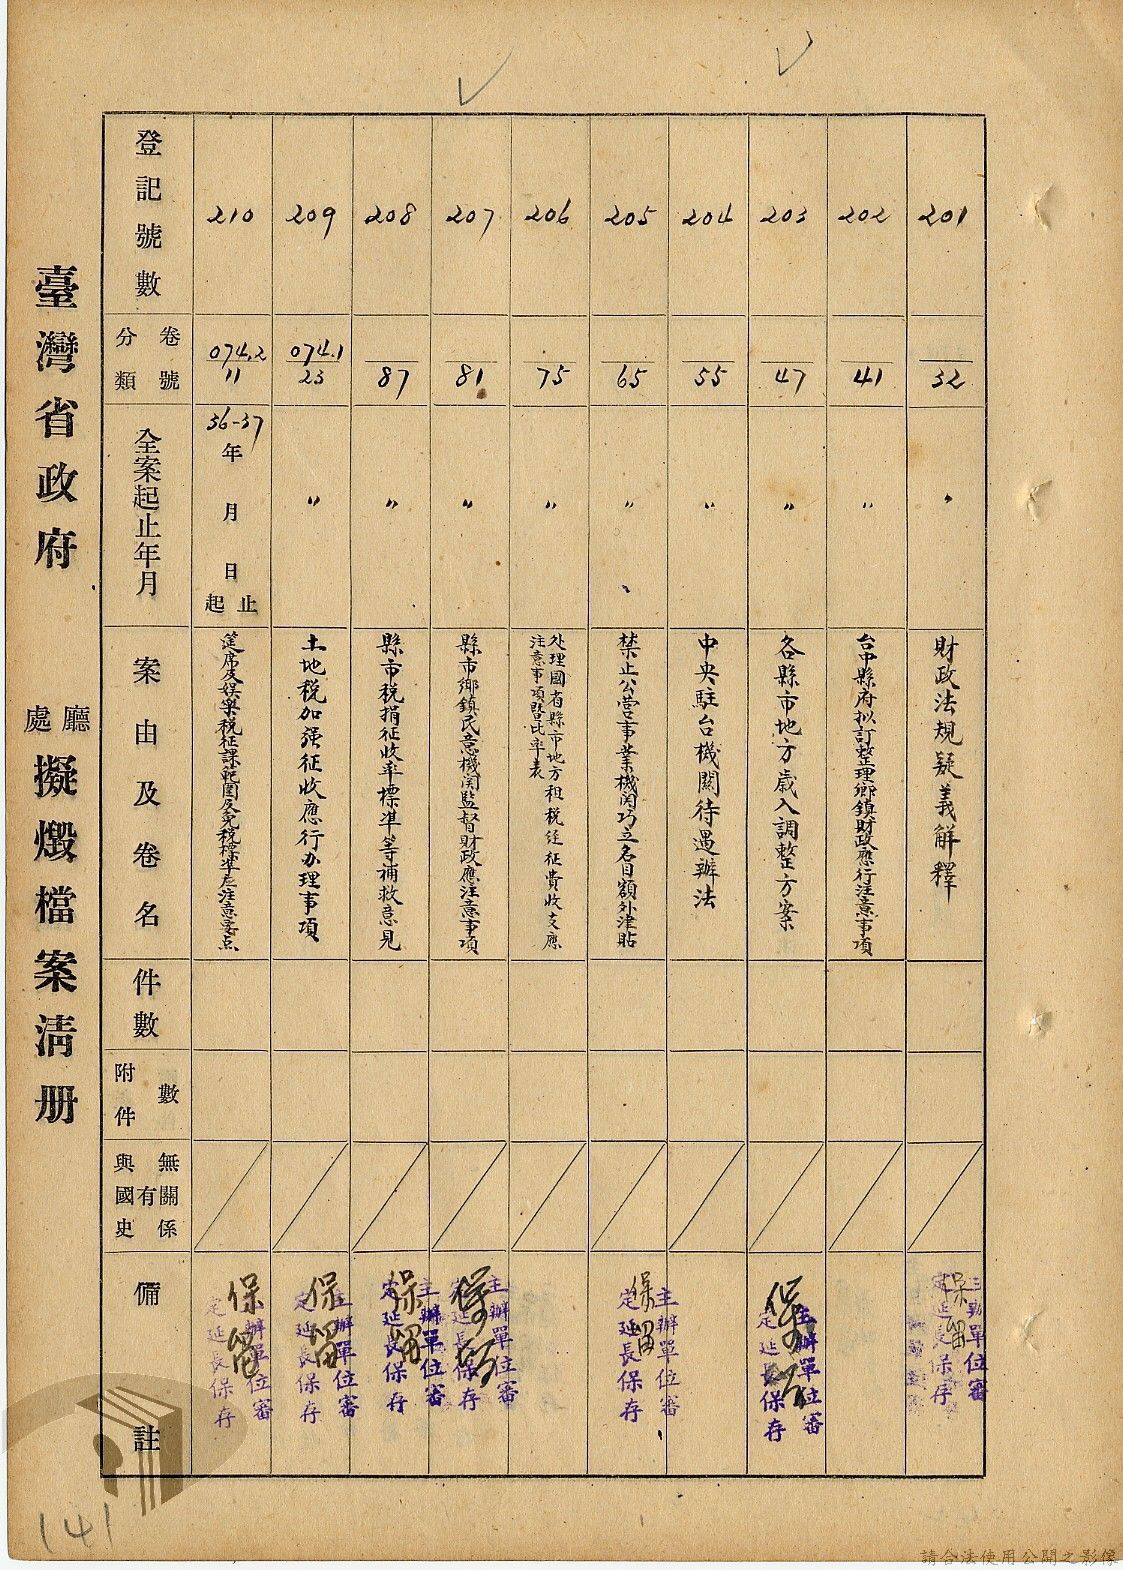 臺灣省政府 廳處 擬燬檔案清册
登記號數
分類 卷號
全案起止年月
案由及卷名
件數
附件數
與國史有無關係
備註
201
32
〃
財政法規疑義解釋
主辦單位審定延長保存
保留
202
41
〃
台中縣府拟訂整理鄉鎮財政應行注意事項
203
47
〃
各縣市地方歲入調整方案
主辦單位審定延長保存
保留
204
55
〃
中央駐台機關待遇辦法
205
65
〃
禁止公营事業機関巧立名目額外津貼
主辦單位審定延長保存
保留
206
75
〃
处理國省縣市地方租税经征費收支應
注意事項暨比率表
207
81
〃
縣市鄉鎮民意機関監督財政應注意事項
主辦單位審定延長保存
保留
208
87
〃
縣市税捐征收率標準等補救意見
主辦單位審定延長保存
保留
209
074.1
23
〃
土地税加强征收應行办理事項
主辦單位審定延長保存
保留
210
074.2
11
36-37
年 月 日 起止
筵席及娱樂税征課範圍及免税標準应注意要点
主辦單位審定延長保存
保留
141
請合法使用公開之影像